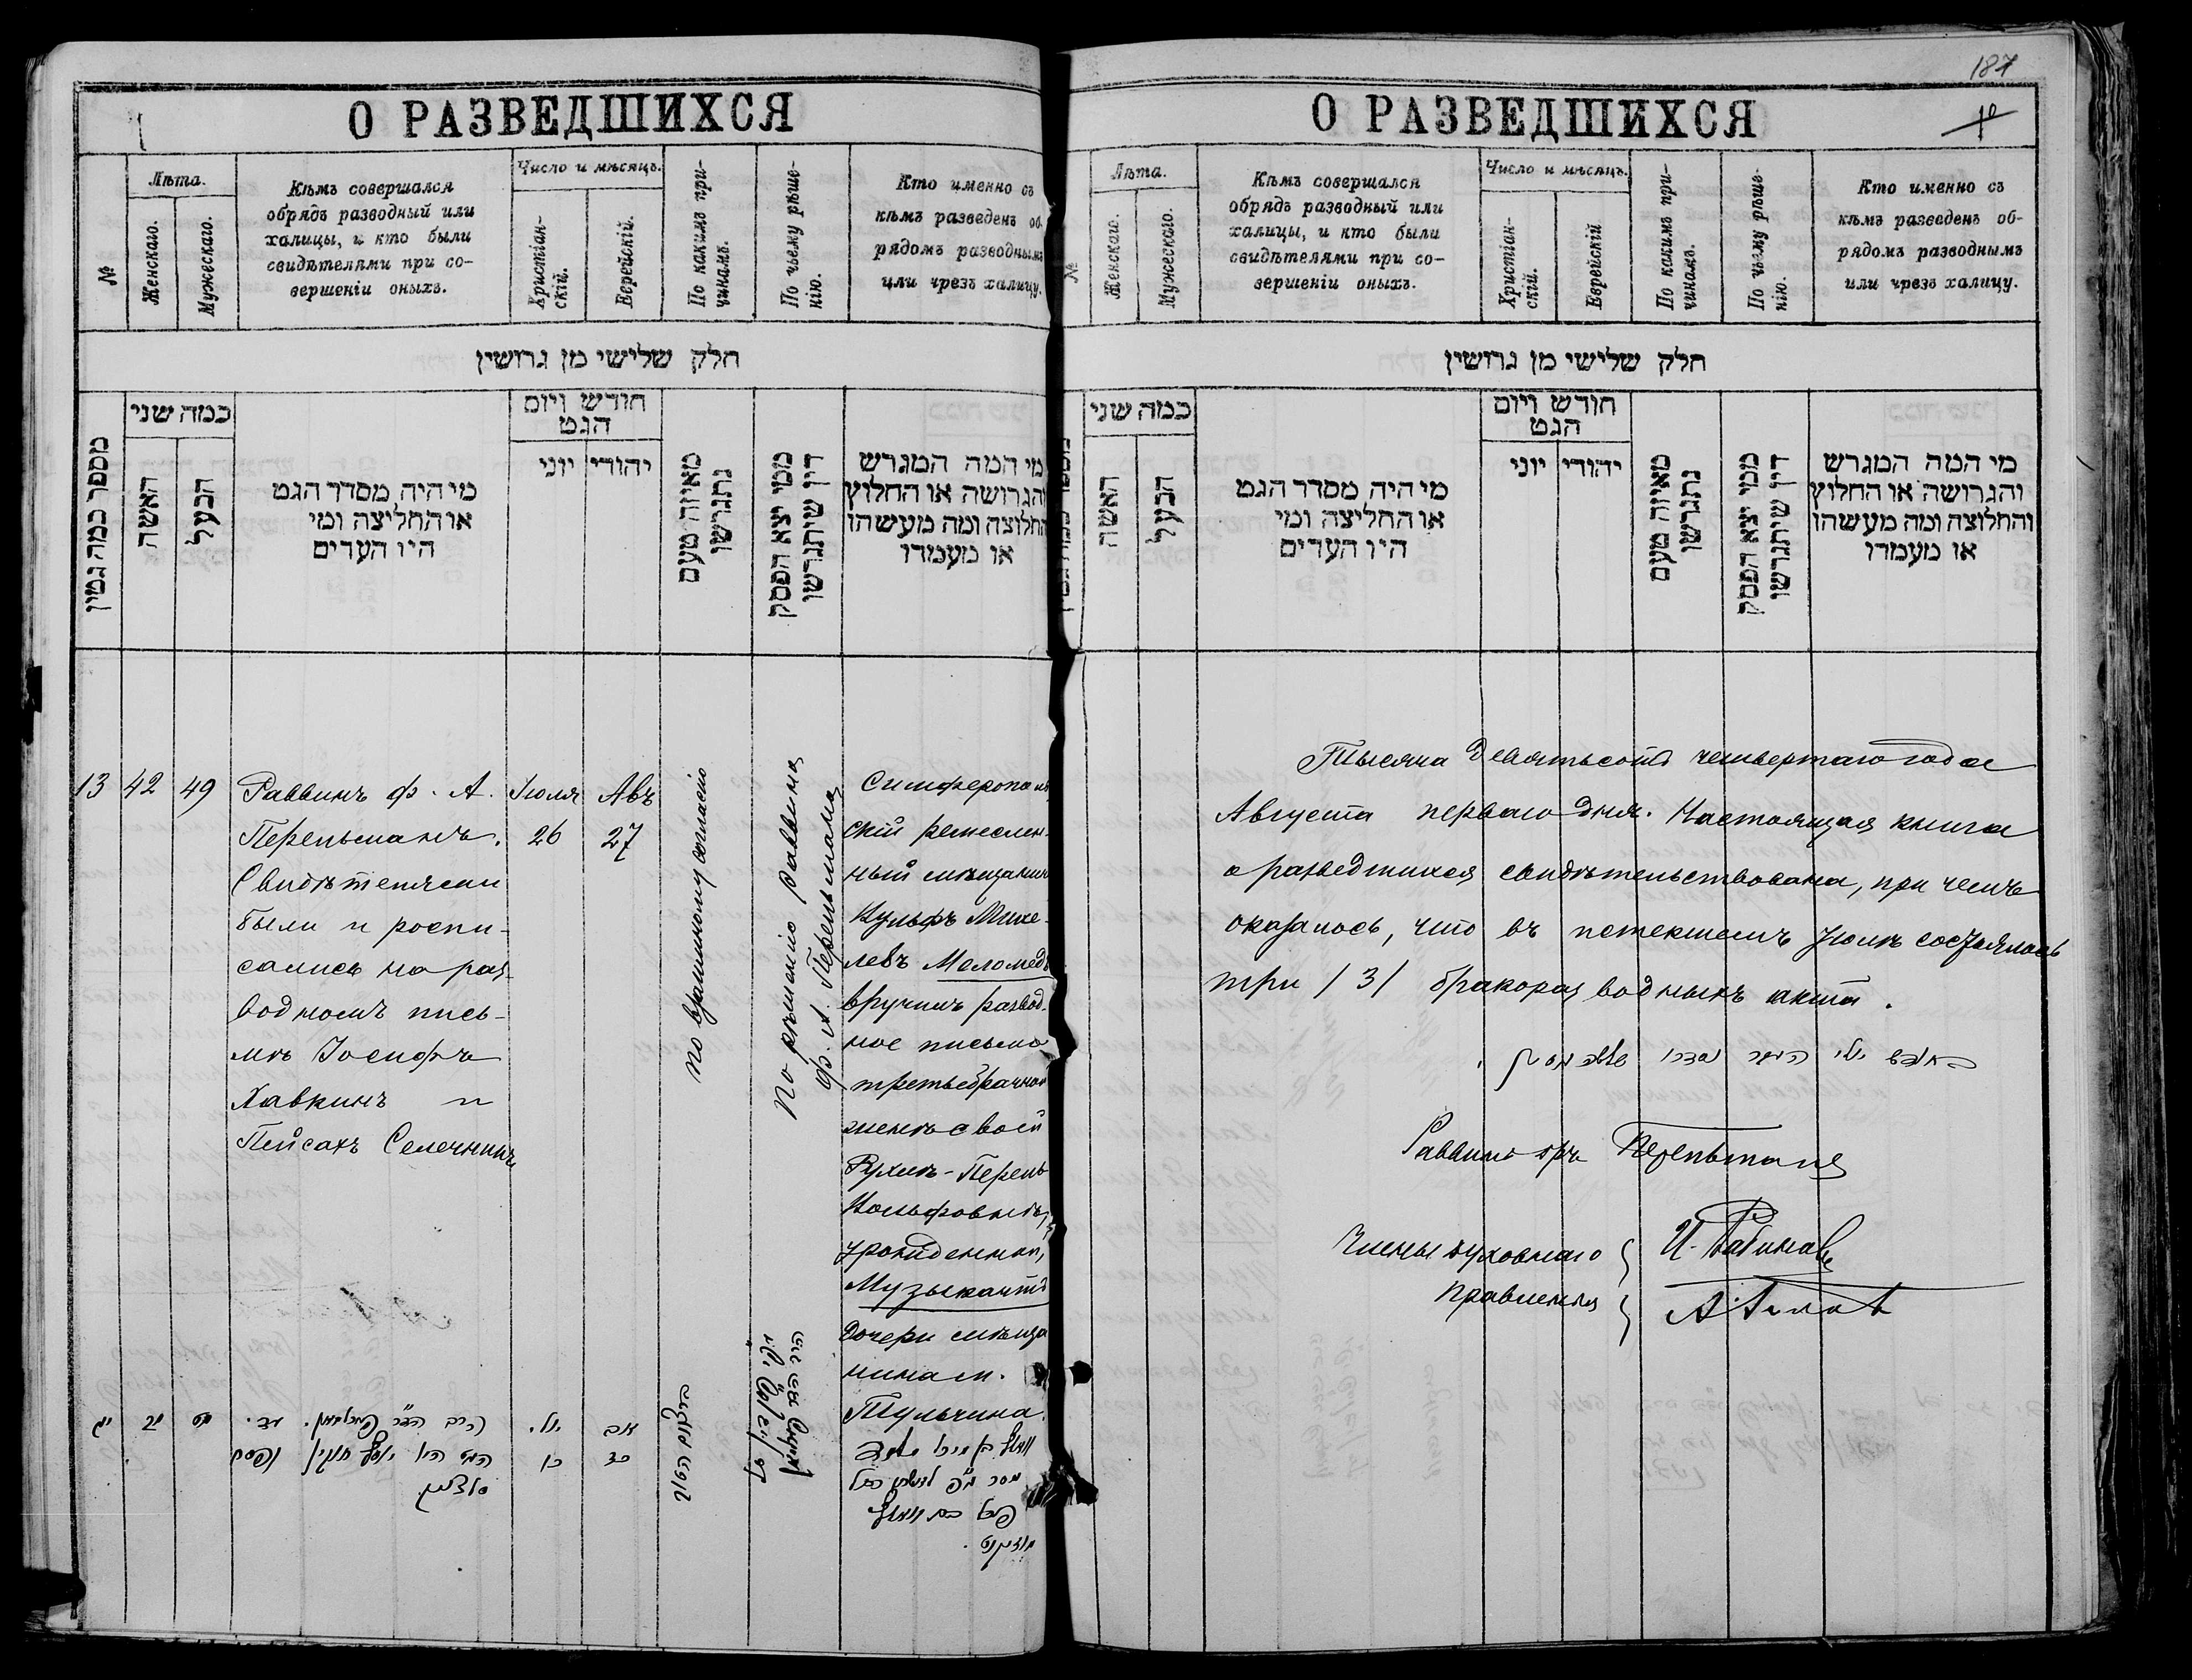 О РАЗВЕДШИХСЯ
№
Лѣта.
Женскаго.
Мужескаго.
Кѣмъ совершался
обрядъ разводный или
халицы, и кто были
свидѣтелями при со-
вершеніи оныхъ.
Число и мѣсяцъ.
Христіан-
скій.
Еврейскій.
По какимъ при-
чинамъ.
По чьему рѣше-
нію.
Кто именно съ
кѣмъ разведенъ об-
рядомъ разводнымъ
или чрезъ халицу.
חלק שלישי מן גרושין
מספר כמה גטין
כמה שני
האשה
הבעל
מי היה מסדר הגט
או החליצה ומי
היו העדים
חודש ויום
הגט
יוני
יהודי
מאיזה טעם
נתגרשו
ממי יצא הפסק
דין שיתגרשו
מי המה המגרש
והגרושה או החלוץ
והחלוצה ומה מעשהו
או מעמדו
13
42
49
Раввинъ ф. А.
Перельманъ.
Свидѣтелями
были и роспи-
сались на раз-
водномъ пись-
мѣ Іосифъ
Хавкинъ и
Пейсахъ Селечникъ
Іюля
26
Авъ
27
по взаимному согласію
По рѣшенію Раввина
ф. А. Перельмана
Симферополь
скій ремеслен-
ный мѣщанинъ
Кульфъ Михе-
левъ Меломедъ
вручилъ развод-
ное письмо
третьебрачной
женѣ своей
Рухлѣ-Перль
Вольфовнѣ,
урожденной,
Музыкантъ
дочери мѣща
нина м.
Тульчина.
יג
מב
מט
יולי
אב
О РАЗВЕДШИХСЯ
187
№
Лѣта.
Женскаго.
Мужескаго.
Кѣмъ совершался
обрядъ разводный или
халицы, и кто были
свидѣтелями при со-
вершеніи оныхъ.
Число и мѣсяцъ.
Христіан-
скій.
Еврейскій
По какимъ при-
чинамъ.
По чьему рѣше-
нію.
Кто именно съ
кѣмъ разведенъ об-
рядомъ разводнымъ
или чрезъ халицу.
חלק שלישי מן גרושין
כמה שני
האשה
הבעל
מי היה מסדר הגט
או החליצה ומי
היו העדים
חודש ויום
הגט
יוני
יהודי
מאיזה טעם
נתגרשו
ממי יצא הפסק
דין שיתגרשו
מי המה המגרש
והגרושה או החלוץ
והחלוצה ומה מעשהו
או מעמדו
Тысяча девятьсотъ четвертаго года
Августа перваго дня. Настоящая книга
о разведшихся свидѣтельствована, при чемъ
оказалось, что въ истекшемъ Іюлѣ состоялось
три /3/ бракоразводныхъ акта.
Раввинъ Перельманъ
Члены духовнаго
правленія